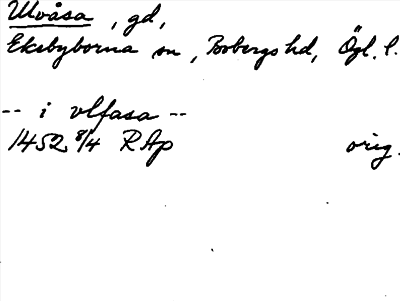 Ulvåsa, gd,
Ekebyborna sn, Bobergs hd, Ögl. l.
-- i vlfasa --
1452 8/4 RAp orig.